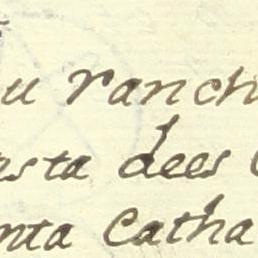 u ranch
sta dees
nta Catha